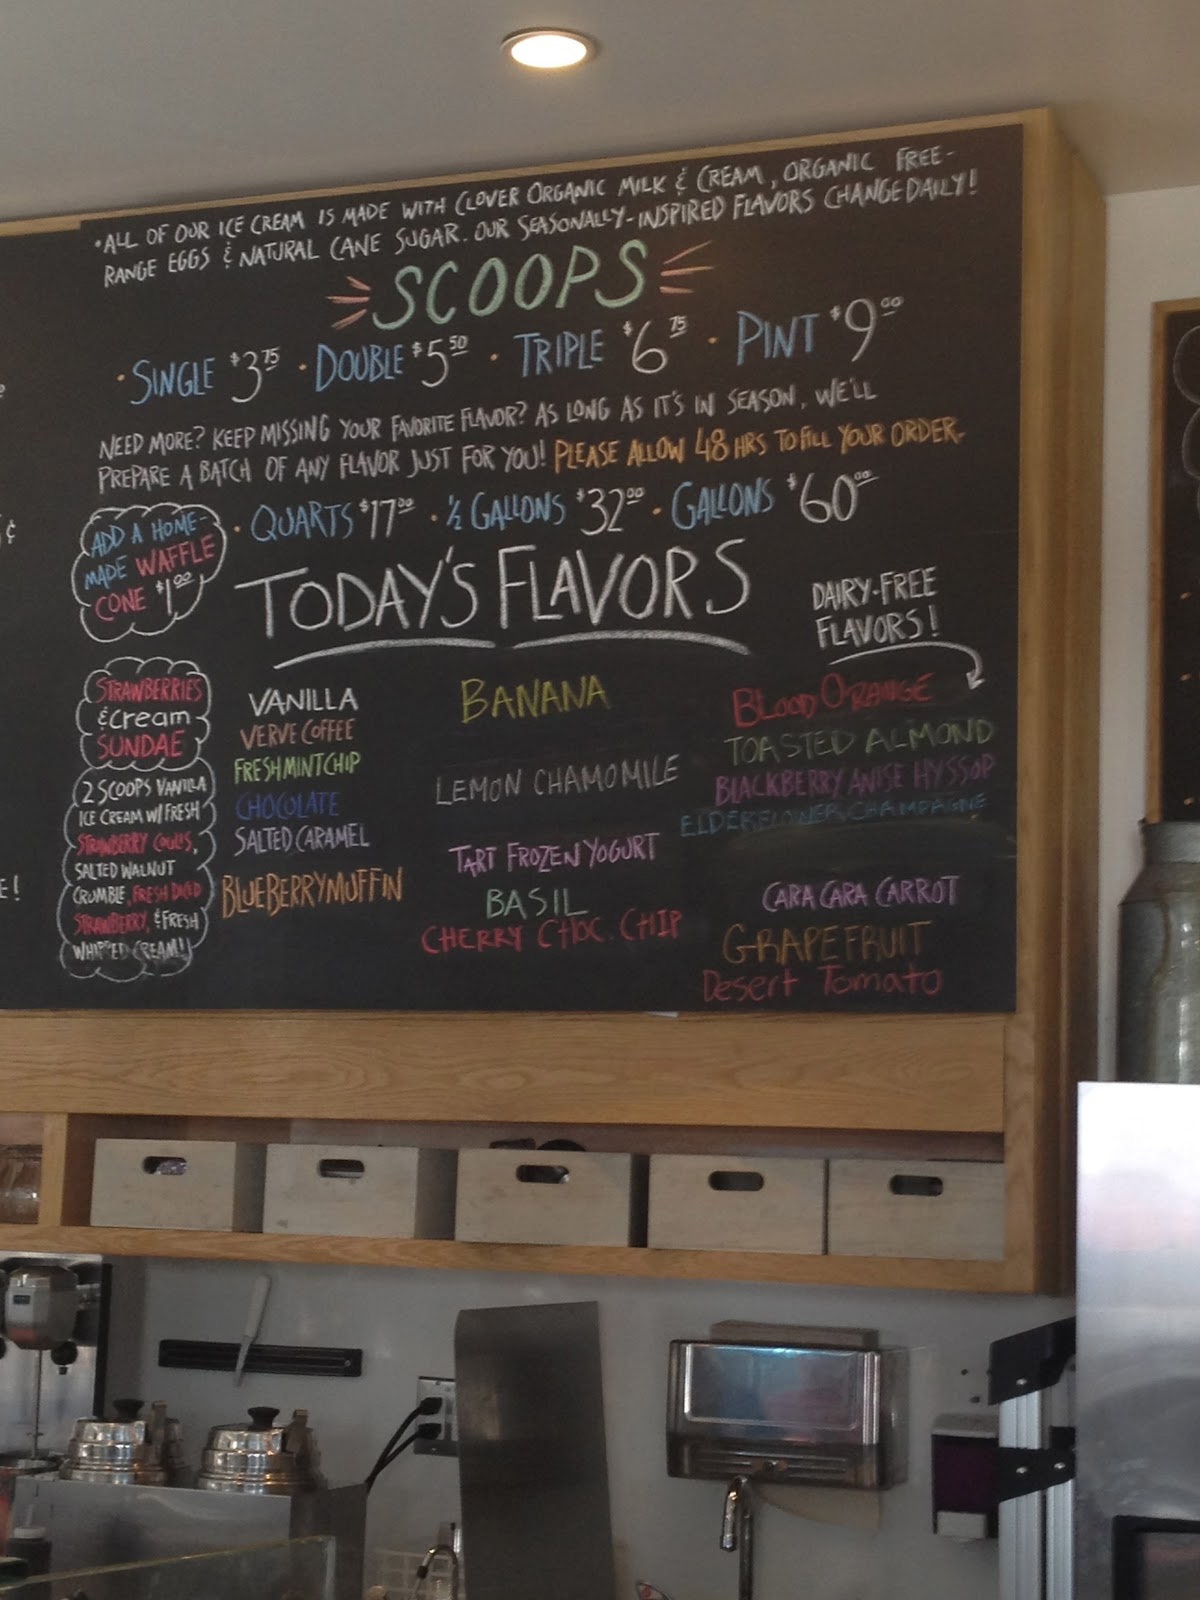 •ALL OF OUR ICE CREAM IS MADE WITH CLOVER ORGANIC MILK & CREAM, ORGANIC FREE-
RANGE EGGS & NATURAL CANE SUGAR. OUR SEASONALLY-INSPIRED FLAVORS CHANGE DAILY!
SCOOPS
• SINGLE $3.75 • DOUBLE $5.50 • TRIPLE $6.75 • PINT $9.00
NEED MORE? KEEP MISSING YOUR FAVORITE FLAVOR? AS LONG AS IT'S IN SEASON, WE'LL
PREPARE A BATCH OF ANY FLAVOR JUST FOR YOU! PLEASE ALLOW 48 HRS TO FILL YOUR ORDER.
• QUARTS $17.00 • ½ GALLONS $32.00 • GALLONS $60.00
ADD A HOME-
MADE WAFFLE
CONE $1.00
TODAY'S FLAVORS
STRAWBERRIES
& Cream
SUNDAE
2 SCOOPS VANILLA
ICE CREAM W/ FRESH
STRAWBERRY COULIS,
SALTED WALNUT
CRUMBLE, FRESH DICED
STRAWBERRY, & FRESH
WHIPPED CREAM!
VANILLA
VERVE COFFEE
FRESH MINT CHIP
CHOCOLATE
SALTED CARAMEL
BLUEBERRY MUFFIN
BANANA
LEMON CHAMOMILE
TART FROZEN YOGURT
BASIL
CHERRY CHOC. CHIP
DAIRY-FREE
FLAVORS!
BLOOD ORANGE
TOASTED ALMOND
BLACKBERRY ANISE HYSSOP
ELDERFLOWER CHAMPAGNE
CARA CARA CARROT
GRAPEFRUIT
Desert Tomato